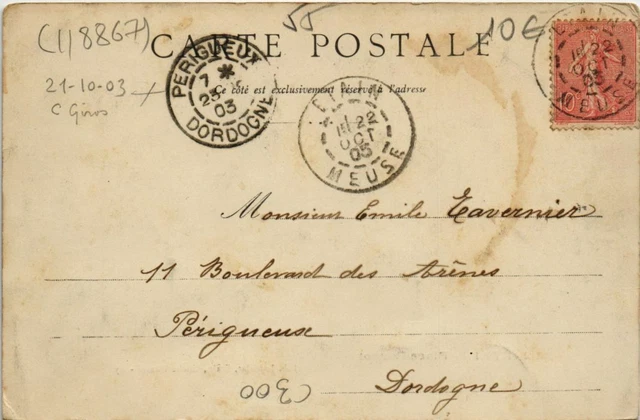 (118867)
55
10€
CARTE POSTALE
Ce côté est exclusivement réservé à l'adresse
21-10-03
PÉRIGUEUX
7 *
23
03
DORDOGNE
ETAIN
22
OCT
03
MEUSE
ETAIN
22
OCT
03
MEUSE
Monsieur Emile Tavernier
11 Boulevard des Arènes
Périgueux
Dordogne
(300